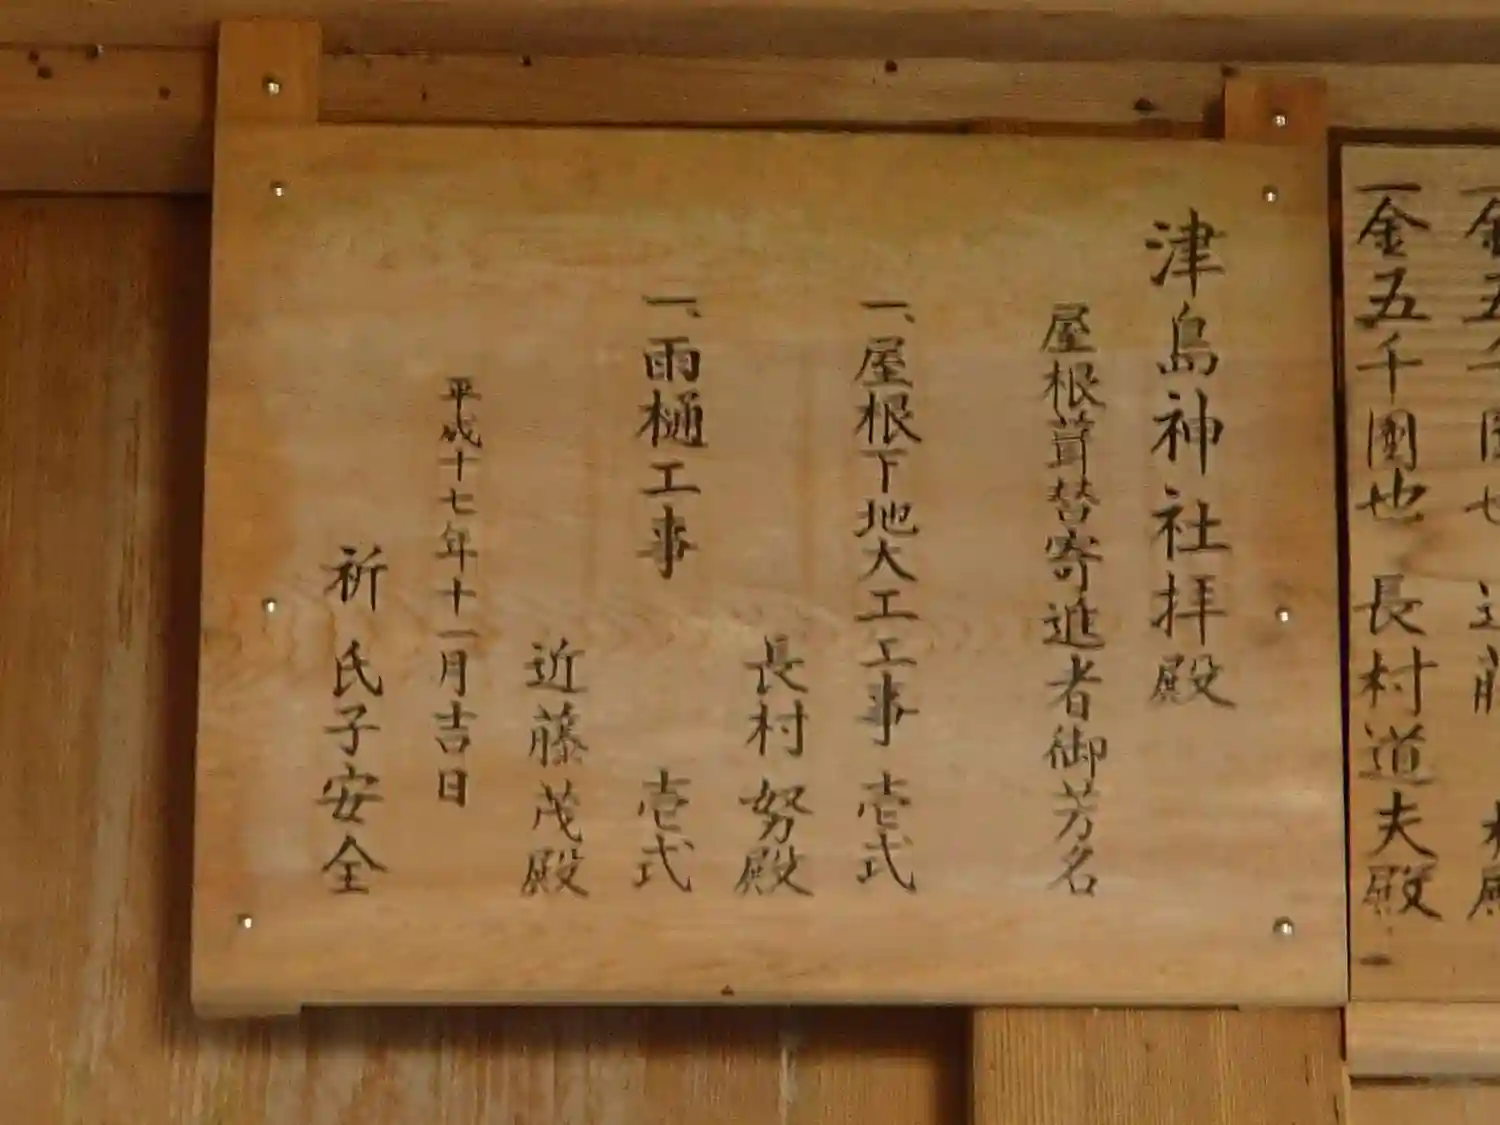 一金五千圓也 長村道夫殿
津島神社拝殿
屋根葺替寄進者御芳名
一、屋根下地大工工事 壱式
長村 努殿
一、雨樋工事 壱式
近藤 茂殿
平成十七年十一月吉日
祈 氏子安全